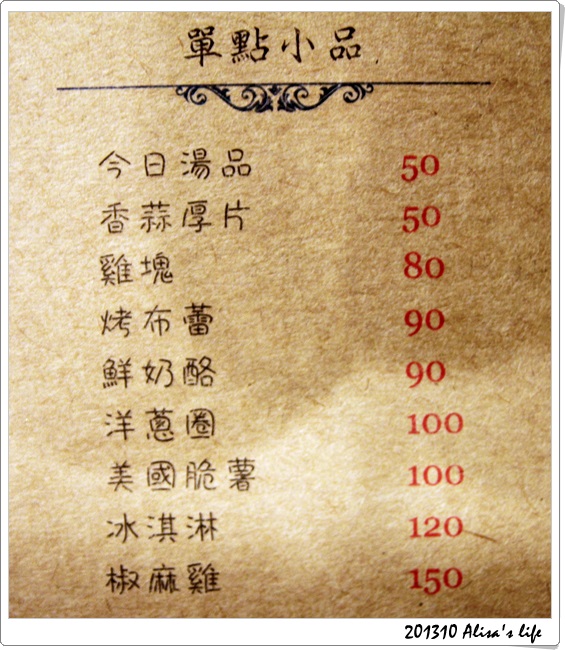 單點小品
今日湯品 50
香蒜厚片 50
雞塊 80
烤布蕾 90
鮮奶酪 90
洋蔥圈 100
美國脆薯 100
冰淇淋 120
椒麻雞 150
201310 Alisa's life